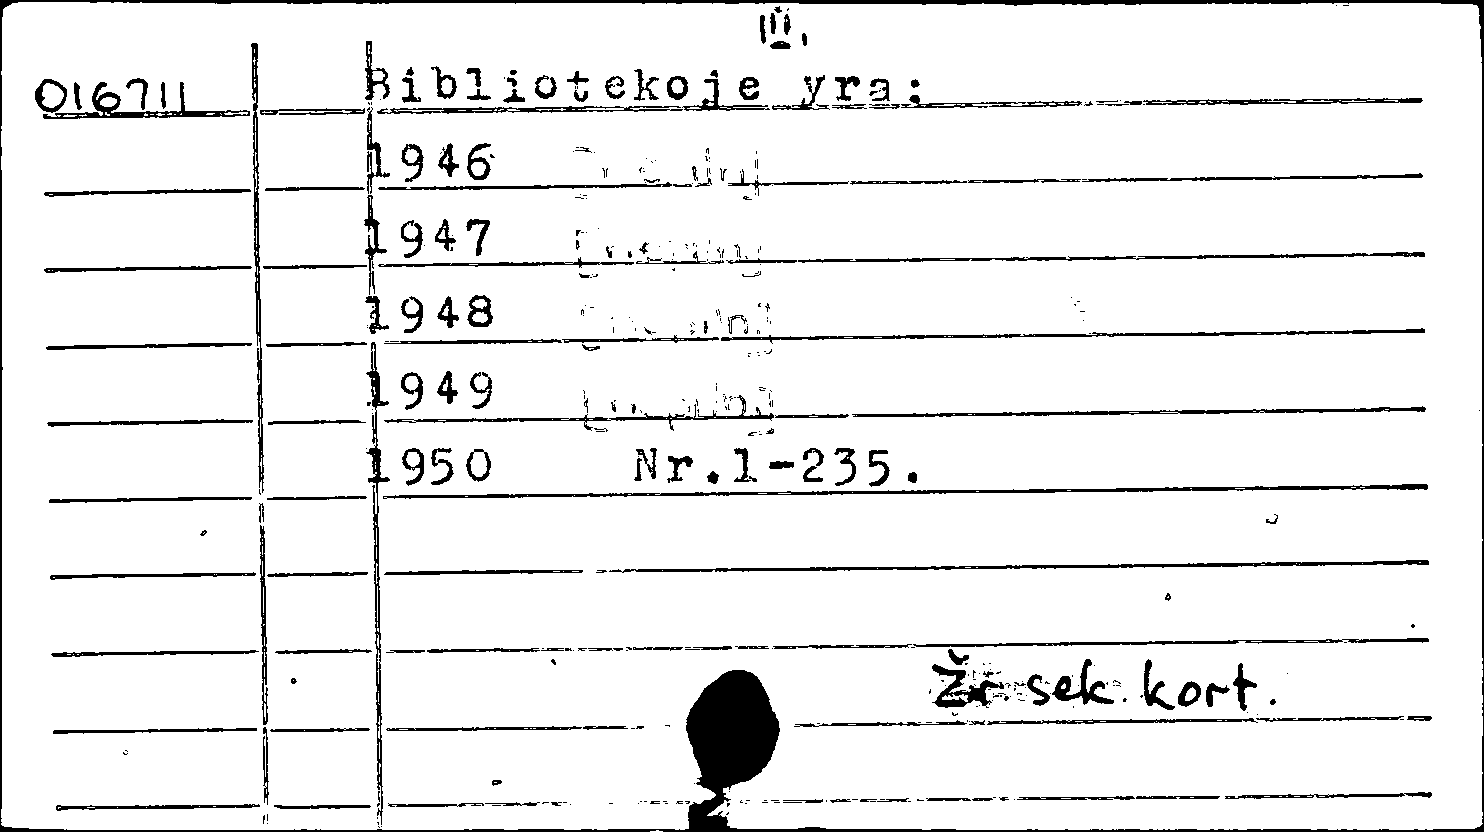 III.
016711 Bibliotekoje yra:
1946
1947
1948
1949
1950 Nr.1-235.
Žr sek. kort.